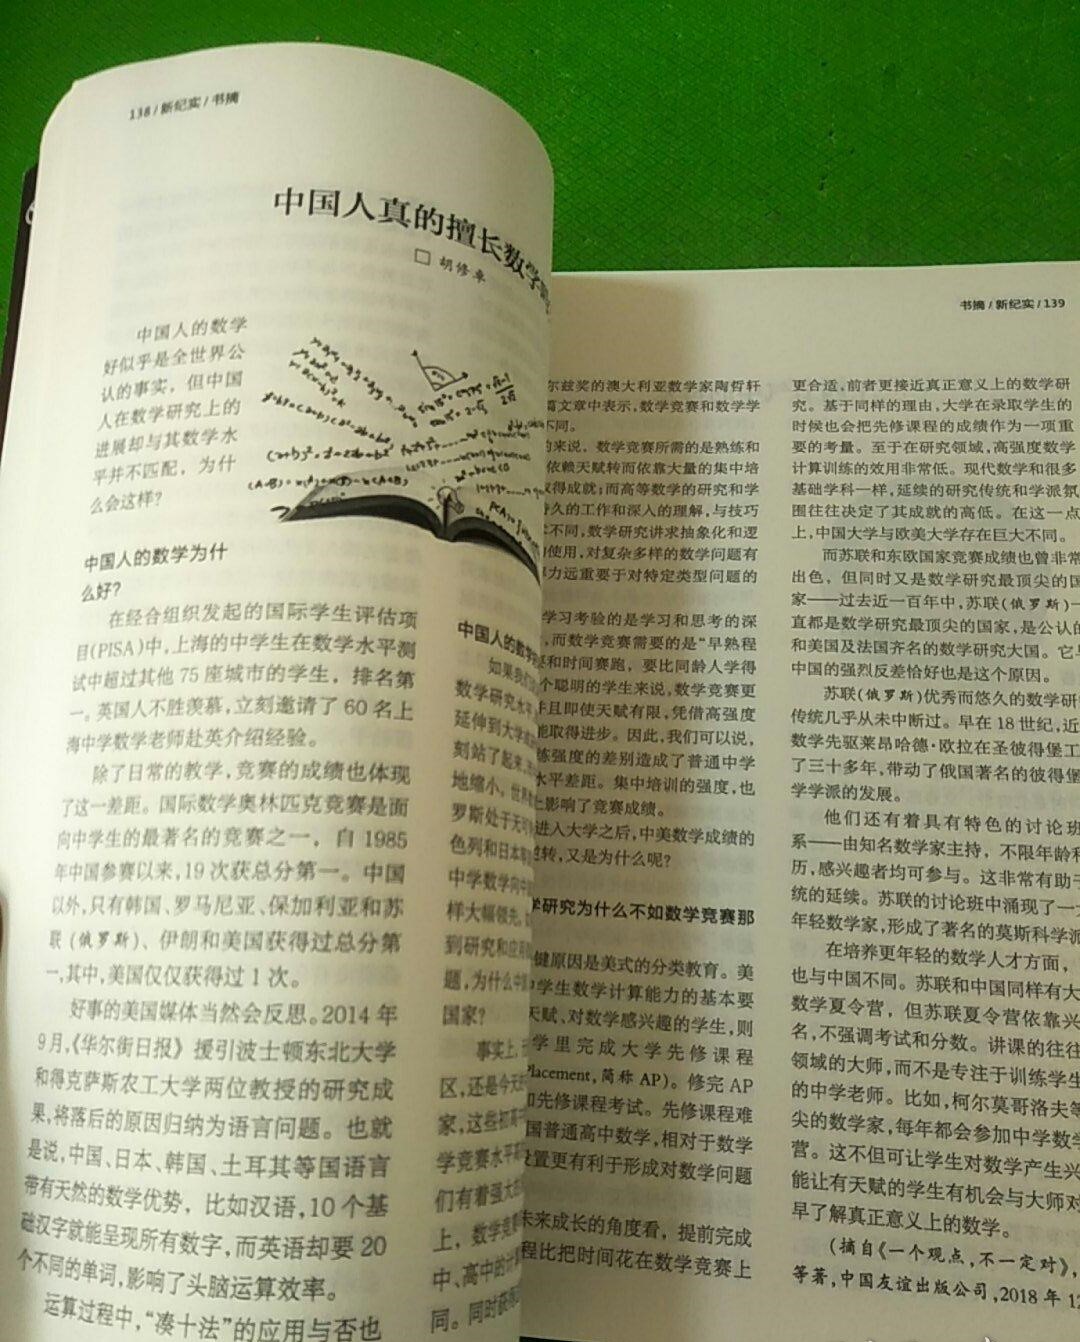 138 / 新纪实 / 书摘
中国人真的擅长数学
□ 胡修卓
中国人的数学
好似乎是全世界公
认的事实，但中国
人在数学研究上的
进展却与其数学水
平并不匹配，为什
么会这样？
中国人的数学为什
么好？
在经合组织发起的国际学生评估项
目(PISA)中，上海的中学生在数学水平测
试中超过其他 75 座城市的学生，排名第
一。英国人不胜羡慕，立刻邀请了 60 名上
海中学数学老师赴英介绍经验。
除了日常的教学，竞赛的成绩也体现
了这一差距。国际数学奥林匹克竞赛是面
向中学生的最著名的竞赛之一，自 1985
年中国参赛以来，19 次获总分第一。中国
以外，只有韩国、罗马尼亚、保加利亚和苏
联（俄罗斯）、伊朗和美国获得过总分第
一，其中，美国仅仅获得过 1 次。
好事的美国媒体当然会反思。2014 年
9 月，《华尔街日报》援引波士顿东北大学
和得克萨斯农工大学两位教授的研究成
果，将落后的原因归纳为语言问题。也就
是说，中国、日本、韩国、土耳其等国语言
带有天然的数学优势，比如汉语，10 个基
础汉字就能呈现所有数字，而英语却要 20
个不同的单词，影响了头脑运算效率。
运算过程中，“凑十法”的应用与否也
中国人的数学
如果我们
数学研究水平
延伸到大学
刻站了起来，
地缩小。世界
罗斯处于无可
色列和日本等
中学数学向中
样大幅领先。
到研究和应用
题，为什么中
国家？
事实上，
区，还是今天
家，这些初高
学竞赛水平
们有着强大的
上，数学竞赛
中、高中的计
同。同时获得
书摘 / 新纪实 / 139
尔兹奖的澳大利亚数学家陶哲轩
篇文章中表示，数学竞赛和数学学
不同。
来说，数学竞赛所需的是熟练和
依赖天赋转而依靠大量的集中培
得成就；而高等数学的研究和学
久的工作和深入的理解，与技巧
不同，数学研究讲求抽象化和逻
使用，对复杂多样的数学问题有
力远重要于对特定类型问题的
学习考验的是学习和思考的深
，而数学竞赛需要的是“早熟程
和时间赛跑，要比同龄人学得
个聪明的学生来说，数学竞赛更
且即使天赋有限，凭借高强度
能取得进步。因此，我们可以说，
练强度的差别造成了普通中学
水平差距。集中培训的强度，也
上影响了竞赛成绩。
进入大学之后，中美数学成绩的
转，又是为什么呢？
学研究为什么不如数学竞赛那
键原因是美式的分类教育。美
学生数学计算能力的基本要
天赋、对数学感兴趣的学生，则
学里完成大学先修课程
Placement，简称 AP）。修完 AP
先修课程考试。先修课程难
国普通高中数学，相对于数学
设置更有利于形成对数学问题
未来成长的角度看，提前完成
程比把时间花在数学竞赛上
更合适，前者更接近真正意义上的数学研
究。基于同样的理由，大学在录取学生的
时候也会把先修课程的成绩作为一项重
要的考量。至于在研究领域，高强度数学
计算训练的效用非常低。现代数学和很多
基础学科一样，延续的研究传统和学派氛
围往往决定了其成就的高低。在这一点
上，中国大学与欧美大学存在巨大不同。
而苏联和东欧国家竞赛成绩也曾非常
出色，但同时又是数学研究最顶尖的国
家——过去近一百年中，苏联（俄罗斯）一
直都是数学研究最顶尖的国家，是公认的
和美国及法国齐名的数学研究大国。它与
中国的强烈反差恰好也是这个原因。
苏联（俄罗斯）优秀而悠久的数学研
传统几乎从未中断过。早在 18 世纪，近
数学先驱莱昂哈德·欧拉在圣彼得堡工
了三十多年，带动了俄国著名的彼得堡
学学派的发展。
他们还有着具有特色的讨论班
系——由知名数学家主持，不限年龄和
历，感兴趣者均可参与。这非常有助于
统的延续。苏联的讨论班中涌现了一大
年轻数学家，形成了著名的莫斯科学派
在培养更年轻的数学人才方面，
也与中国不同。苏联和中国同样有大
数学夏令营，但苏联夏令营依靠兴
名，不强调考试和分数。讲课的往往
领域的大师，而不是专注于训练学生
的中学老师。比如，柯尔莫哥洛夫等
尖的数学家，每年都会参加中学数学
营。这不但可让学生对数学产生兴
能让有天赋的学生有机会与大师对
早了解真正意义上的数学。
（摘自《一个观点，不一定对》，
等著，中国友谊出版公司，2018 年 12